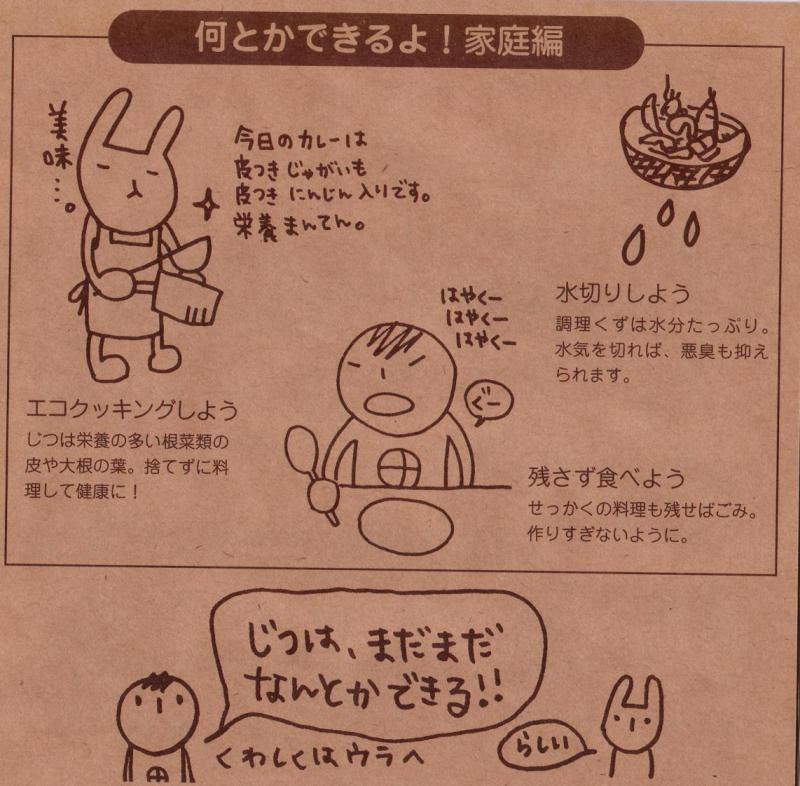 何とかできるよ！家庭編
美味…。
今日のカレーは
皮つきじゃがいも
皮つき にんじん入りです。
栄養まんてん。
エコクッキングしよう
じつは栄養の多い根菜類の
皮や大根の葉。捨てずに料
理して健康に！
水切りしよう
調理くずは水分たっぷり。
水気を切れば、悪臭も抑え
られます。
はやくー
はやくー
はやくー
ぐー
残さず食べよう
せっかくの料理も残せばごみ。
作りすぎないように。
じつは、まだまだ
なんとかできる!!
くわしくはウラへ
らしい